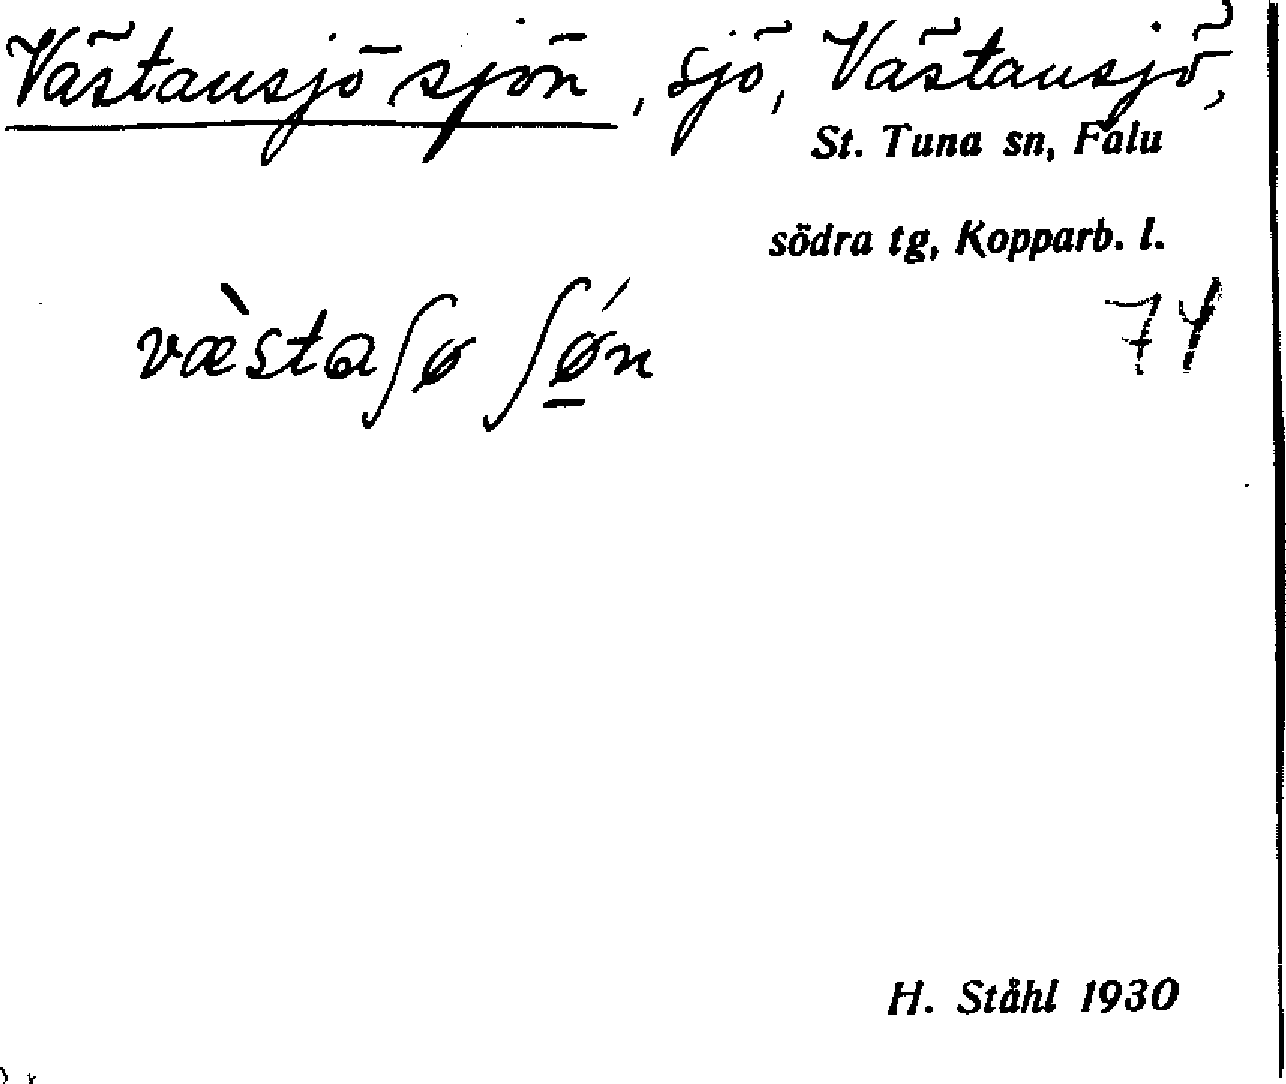 Västansjö sjön, sjö, Västansjö,
St. Tuna sn, Falu
södra tg, Kopparb. l.
væ̀staʃø ʃǿ̲n
74
H. Ståhl 1930